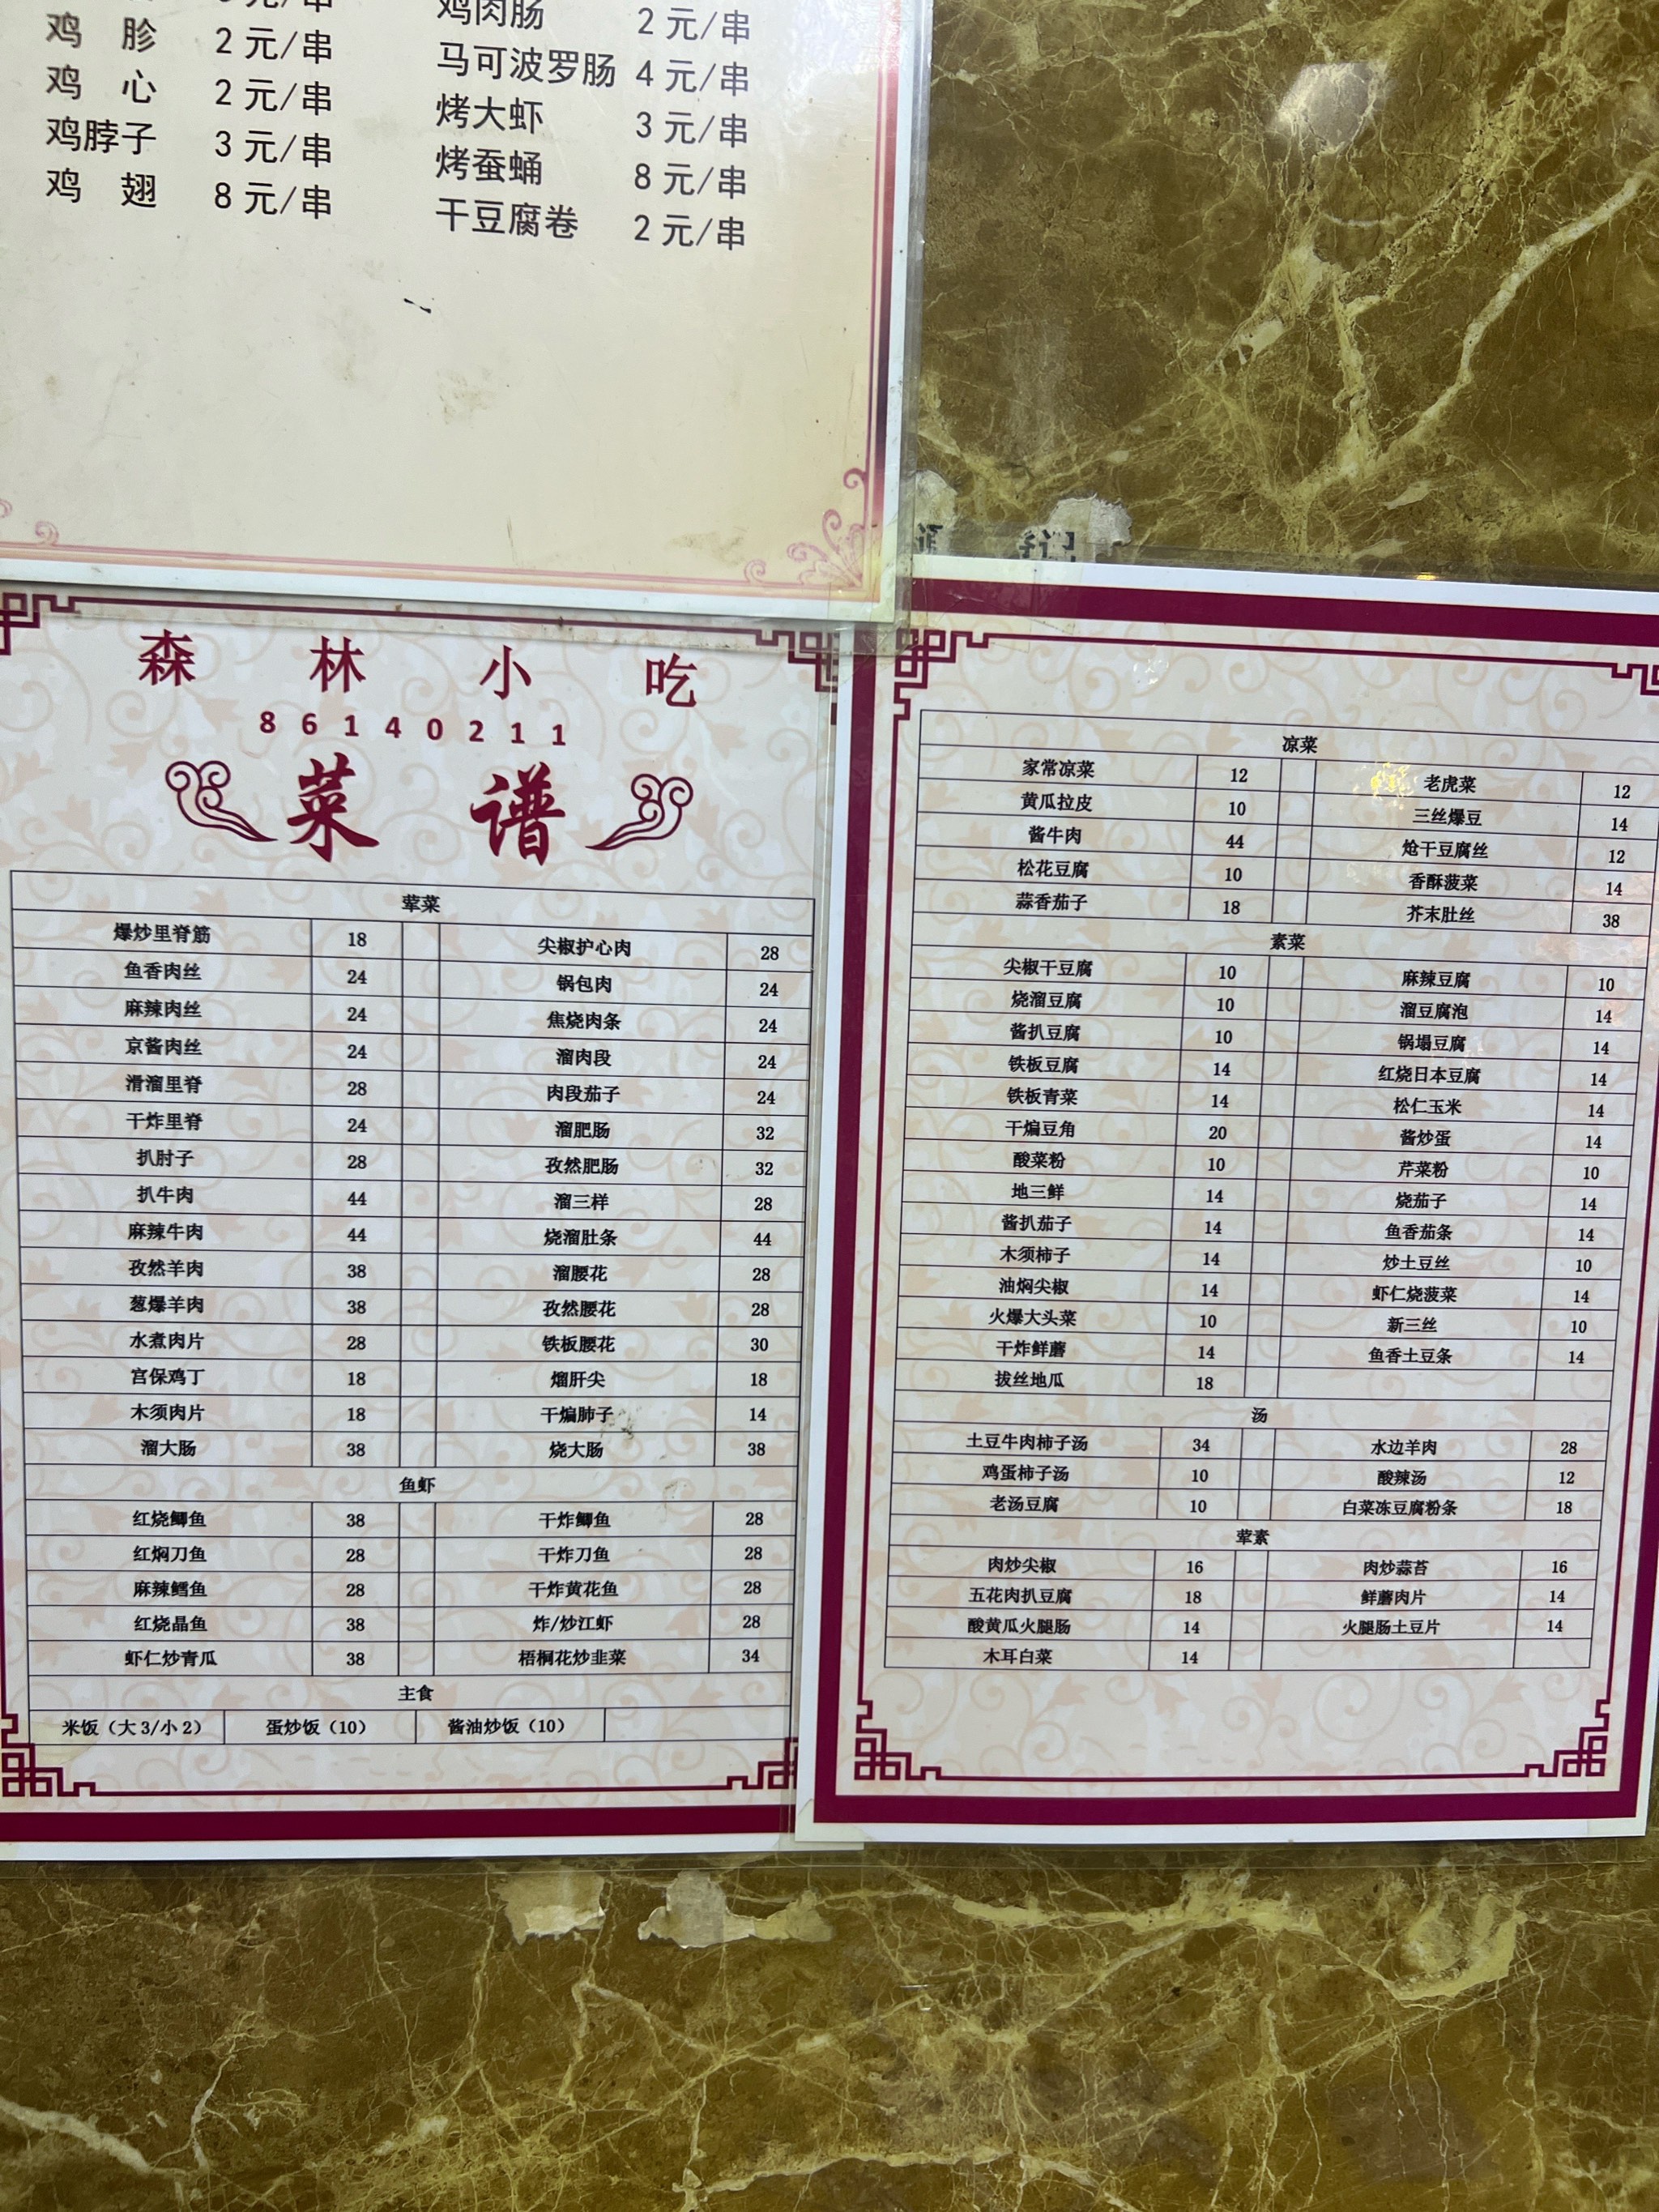 鸡胗 2元/串
鸡心 2元/串
鸡脖子 3元/串
鸡翅 8元/串
鸡肉肠 2元/串
马可波罗肠 4元/串
烤大虾 3元/串
烤蚕蛹 8元/串
干豆腐卷 2元/串
森林小吃
86140211
菜谱
荤菜
爆炒里脊筋 18 尖椒护心肉 28
鱼香肉丝 24 锅包肉 24
麻辣肉丝 24 焦烧肉条 24
京酱肉丝 24 溜肉段 24
滑溜里脊 28 肉段茄子 24
干炸里脊 24 溜肥肠 32
扒肘子 28 孜然肥肠 32
扒牛肉 44 溜三样 28
麻辣牛肉 44 烧溜肚条 44
孜然羊肉 38 溜腰花 28
葱爆羊肉 38 孜然腰花 28
水煮肉片 28 铁板腰花 30
宫保鸡丁 18 熘肝尖 18
木须肉片 18 干煸肺子 14
溜大肠 38 烧大肠 38
鱼虾
红烧鲫鱼 38 干炸鲫鱼 28
红焖刀鱼 28 干炸刀鱼 28
麻辣鳕鱼 28 干炸黄花鱼 28
红烧晶鱼 38 炸/炒江虾 28
虾仁炒青瓜 38 梧桐花炒韭菜 34
主食
米饭（大3/小2） 蛋炒饭（10） 酱油炒饭（10）
凉菜
家常凉菜 12 老虎菜 12
黄瓜拉皮 10 三丝爆豆 14
酱牛肉 44 炝干豆腐丝 12
松花豆腐 10 香酥菠菜 14
蒜香茄子 18 芥末肚丝 38
素菜
尖椒干豆腐 10 麻辣豆腐 10
烧溜豆腐 10 溜豆腐泡 14
酱扒豆腐 10 锅塌豆腐 14
铁板豆腐 14 红烧日本豆腐 14
铁板青菜 14 松仁玉米 14
干煸豆角 20 酱炒蛋 14
酸菜粉 10 芹菜粉 10
地三鲜 14 烧茄子 14
酱扒茄子 14 鱼香茄条 14
木须柿子 14 炒土豆丝 10
油焖尖椒 14 虾仁烧菠菜 14
火爆大头菜 10 新三丝 10
干炸鲜蘑 14 鱼香土豆条 14
拔丝地瓜 18
汤
土豆牛肉柿子汤 34 水边羊肉 28
鸡蛋柿子汤 10 酸辣汤 12
老汤豆腐 10 白菜冻豆腐粉条 18
荤素
肉炒尖椒 16 肉炒蒜苔 16
五花肉扒豆腐 18 鲜蘑肉片 14
酸黄瓜火腿肠 14 火腿肠土豆片 14
木耳白菜 14